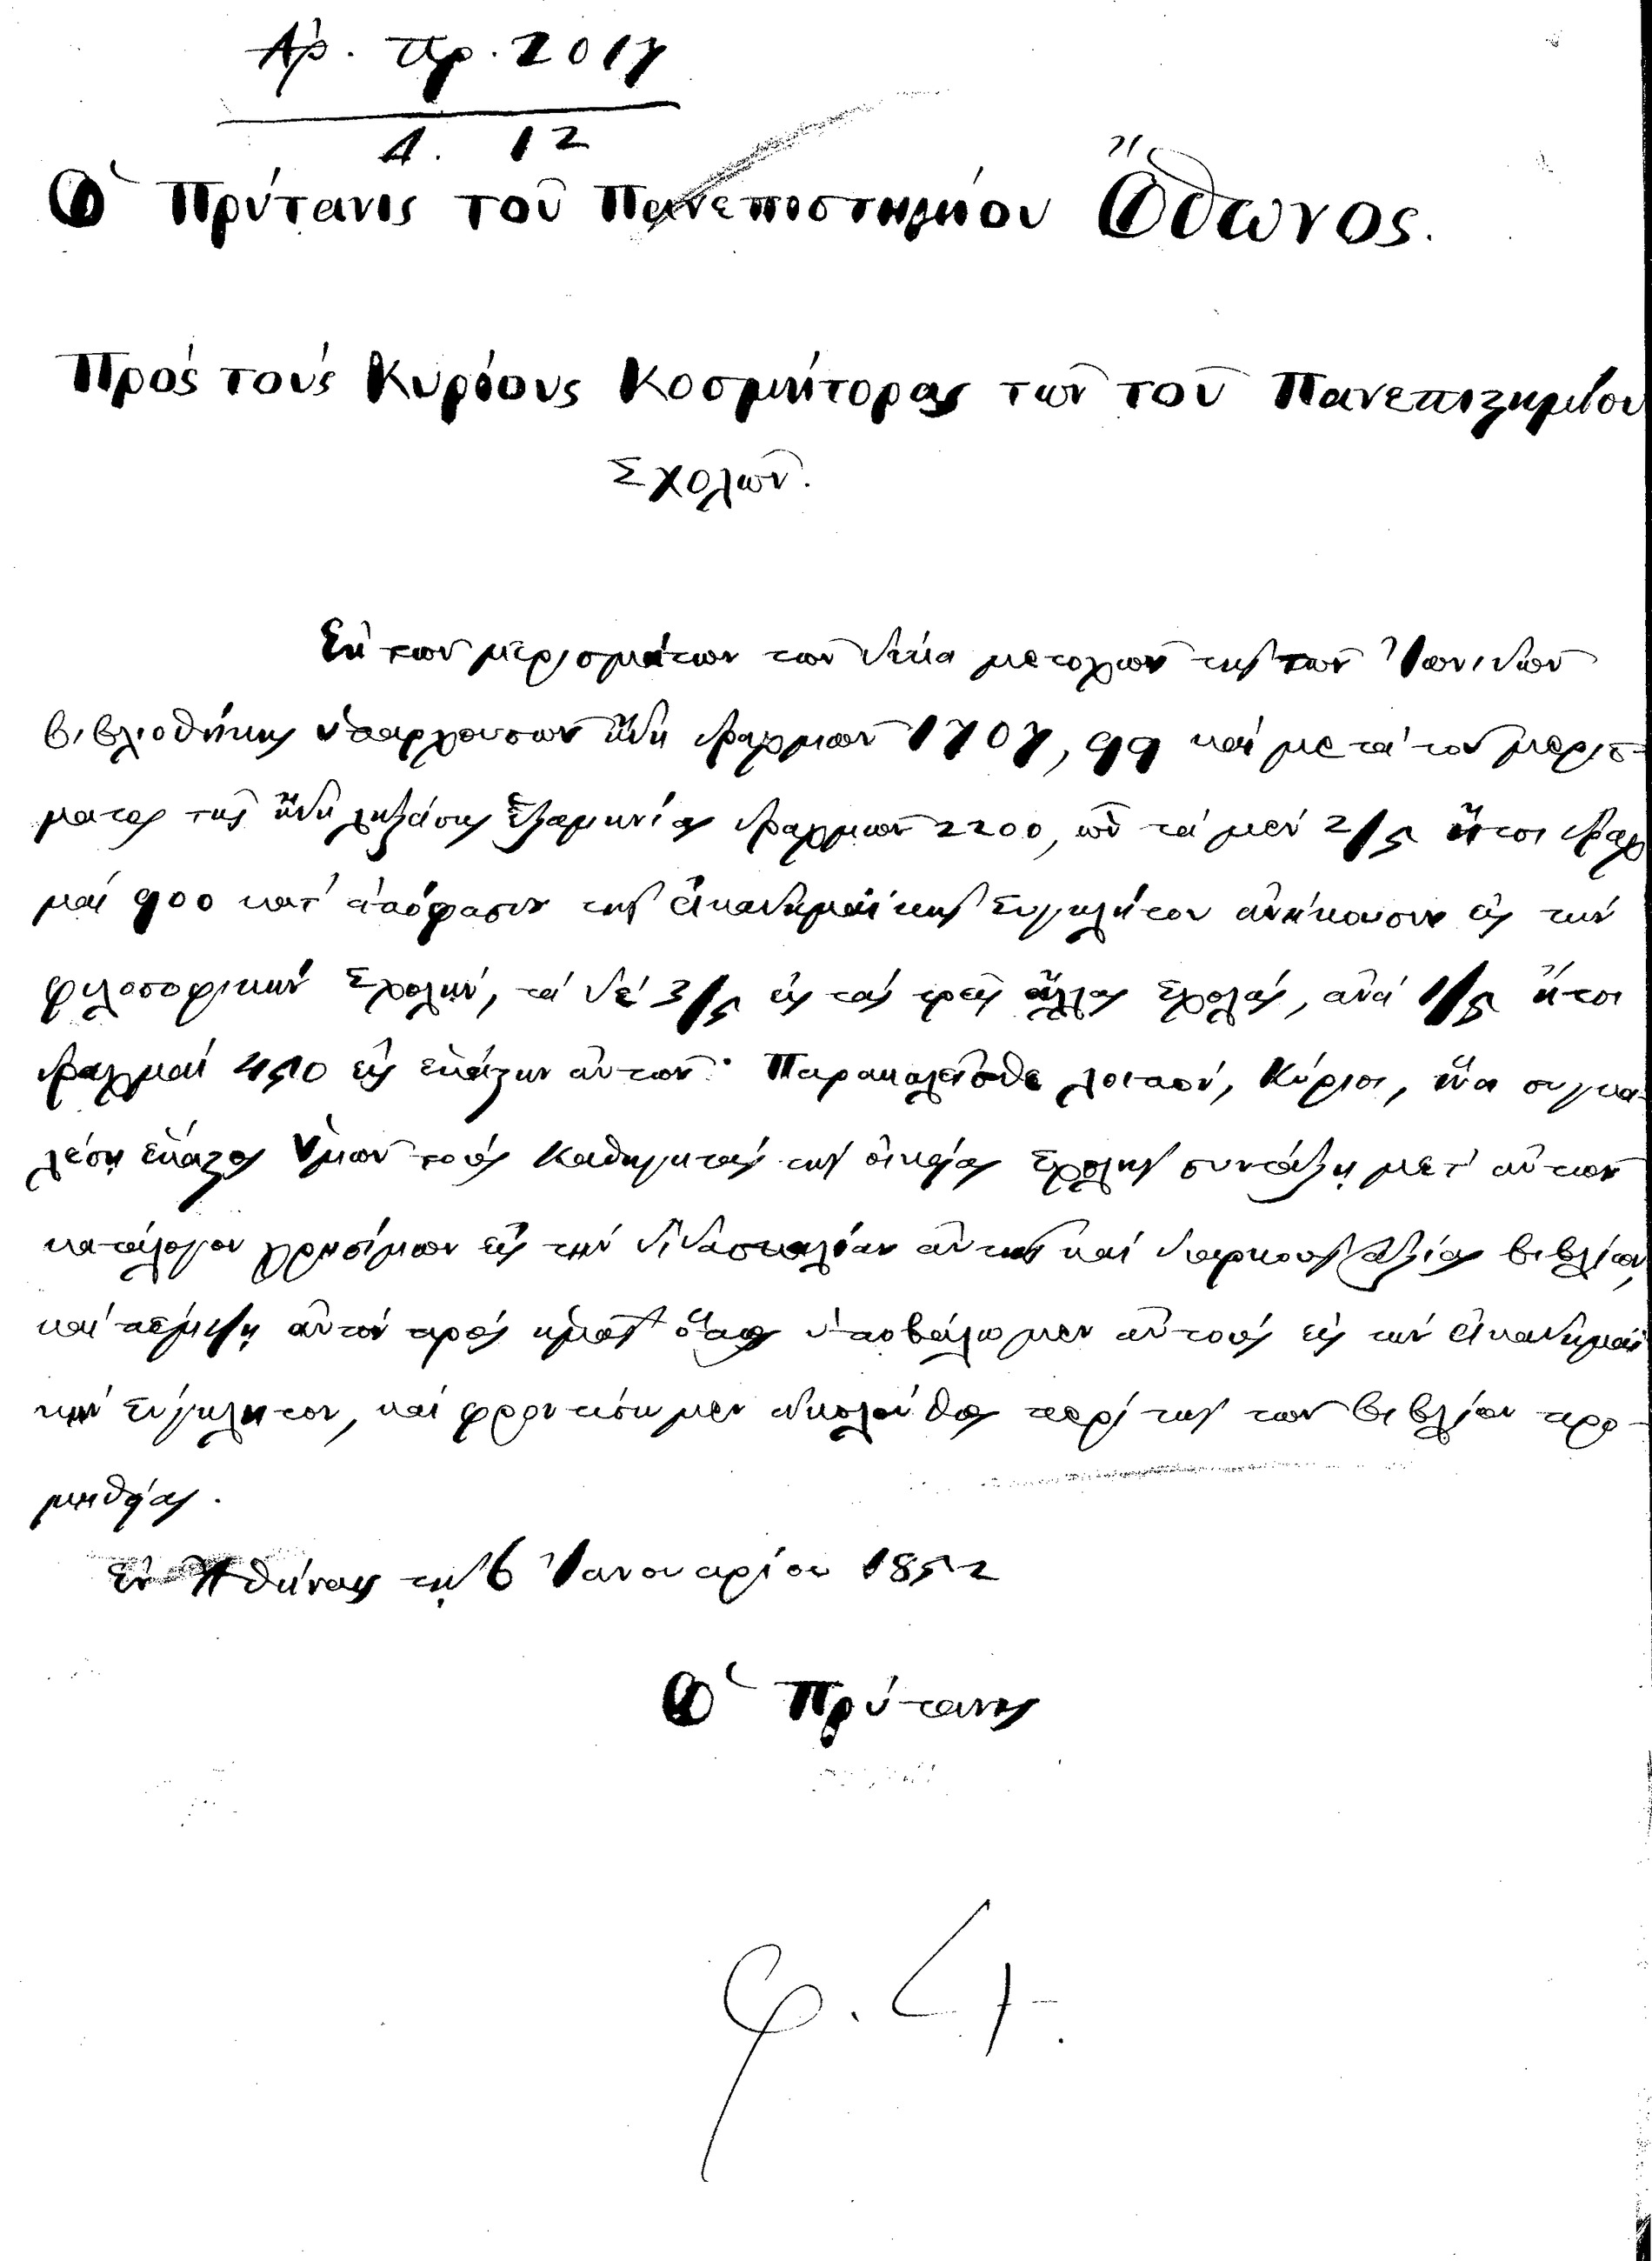 Ἀρ. Πρ. 2017
Δ. 12
Ὁ Πρύτανις τοῦ Πανεπιστημίου Ὄθωνος.
Πρὸς τοὺς Κυρίους Κοσμήτορας τῶν τοῦ Πανεπιστημίου
Σχολῶν.
Ἐκ τῶν μερισμάτων τῶν δέκα μετοχῶν τῆς τῶν Ἰωνιδῶν
βιβλιοθήκης ὑπαρχουσῶν ἤδη δραχμῶν 1707,99 καὶ μετὰ τοῦ μερίσ-
ματος τῆς ἤδη ληξάσης ἑξαμηνίας δραχμῶν 2200, ὧν τὰ μὲν 2/5 ἤτοι δραχ
μαὶ 900 κατ' ἀπόφασιν τῆς Ἀκαδημαϊκῆς Συγκλήτου ἀνήκουσιν εἰς τὴν
φιλοσοφικὴν Σχολὴν, τὰ δὲ 3/5 εἰς τὰς τρεῖς ἄλλας Σχολάς, ἀνὰ 1/5 ἤτοι
δραχμαὶ 450 εἰς ἑκάστην αὐτῶν· Παρακαλεῖσθε λοιπὸν, Κύριοι, ἵνα συγκα-
λέσῃ ἕκαστος ὑμῶν τοὺς Καθηγητὰς τῆς οἰκείας Σχολῆς συντάξῃ μετ' αὐτῶν
κατάλογον χρησίμων εἰς τὴν διδασκαλίαν αὐτῆς καὶ διαρκοῦς ἀξίας βιβλίων,
καὶ πέμψῃ αὐτὸν πρὸς ἡμᾶς ὅπως ὑποβάλωμεν αὐτοὺς εἰς τὴν Ἀκαδημαϊ
κὴν Σύγκλητον, καὶ φροντίσωμεν ἀκολούθως περὶ τῆς τῶν βιβλίων προ-
μηθείας.
Ἐν Ἀθήναις τῇ 6 Ἰανουαρίου 1852
Ὁ Πρύτανις